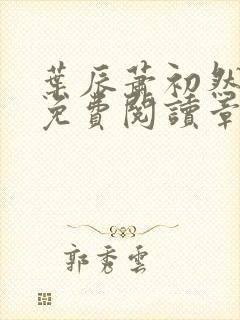 葉辰蕭初然
免費閱讀章
郭秀雲